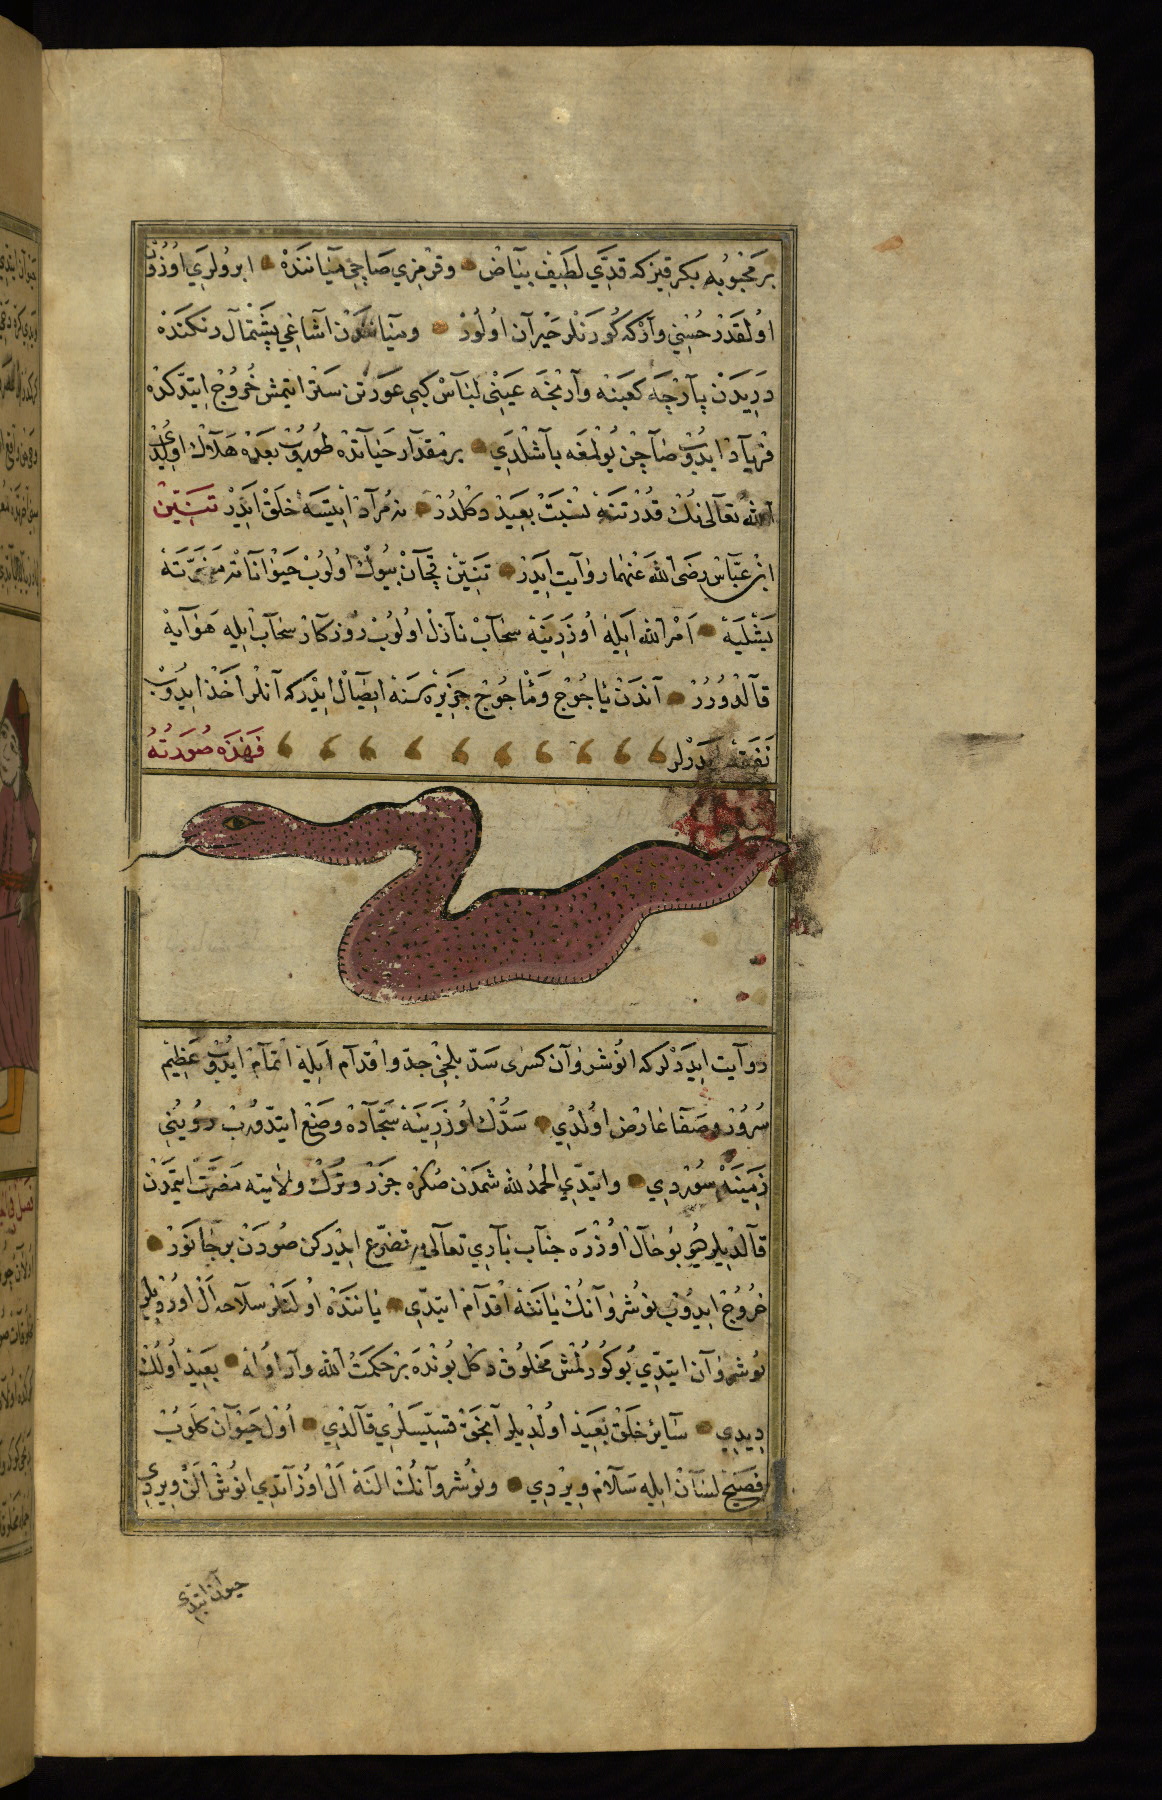 بر محبوبه بكر قيز كه قدي لطيف بياض وقرمزي صاچي ميانندَه ابرولري اوزون
اولقدر حسني وار كه كورنلر حيران اولور ومياندن اشاغي پشتمال رنكنده
دريدن پارچه كعبنه وارنجه عيني لباس كبي عورتن ستر ايتمش خروج ايتدكده
فرياد ايدوب صاچن يولمغه باشلدي بر مقدار حياتده طوروب بعده هلاك اولدي
الله تعالى نك قدرتنه نسبت بعيد دكلدر نه مراد ايتسه خلق ايدر تنين
ابن عباس رضى الله عنهما روايت ايدر تنين قچان بيوك اولوب حيواناته مضرته
بشليه امر الله ايله اوزرينه سحاب نازل اولوب روزكار سحاب ايله هوايه
قالدورر اندن ياجوج وماجوج جزيره سنه ايصال ايدر كه انلر اخذ ايدوب
نفقه ايدرلر فهذه صورته
روايت ايدرلر كه انوشروان كسرى سد بلخي جد واقدام ايله اتمام ايدوب عظيم
سرور وصفا عارض اولدي سدك اوزرينه سجاده وضع ايتدروب رويني
زمينه سوردي وايتدي الحمد لله شمدن صكره خزر وترك ولايته مضرت ايتمدن
قالديلر هو بو حال اوزره جناب باري تعالى يه تضرع ايدركن صوردن بر جانور
خروج ايدوب نوشروانك ياننه اقدام ايتدي ياننده اولنلر سلاحه ال اورديلر
نوشروان ايتدي بو كورلمش مخلوق دكل بونده بر حكمت الله وار اوله بعيد اولك
ديدي سائر خلق بعيد اولديلر انجق قسيسلري قالدي اول حيوان كلوب
فصيح لسان ايله سلام ويردي ونوشروانك الينه ال اوزاتدي انوش الن ويردي
حيوان ايتدي